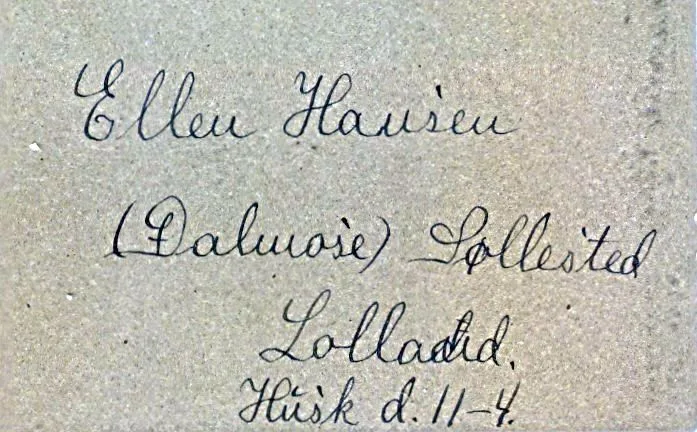 Ellen Hansen
(Dalmose) Søllested
Lolland.
Husk d. 11-4.